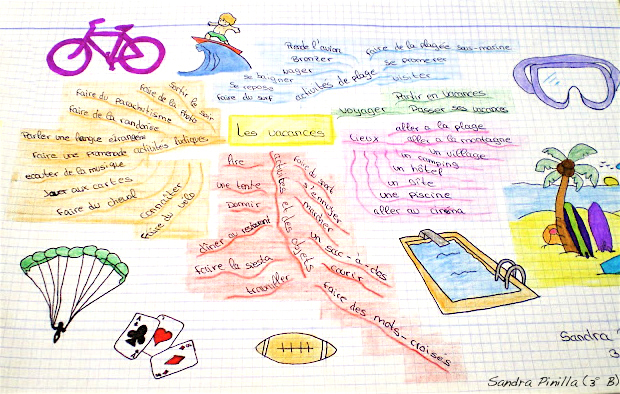 Prende l'avion
Bronzer
nager
se baigner
se repose
faire du surf
activités de plage
faire de la plagée sous-marine
se promener
visiter
voyager
Partir en vacances
Passer ses vacances
Les vacances
Sortir le soir
faire de la photo
faire du parachutisme
faire de la randoise
Parler une langue etrangère
activités ludiques
faire une promenade
ecouter de la musique
Jouer aux cartes
faire du cheval
connaître
faire du velo
lieux
aller a la plage
aller a la montagne
un village
un camping
un hôtel
un gîte
une piscine
aller au cinéma
activites et des objets
lire
une tente
Dormir
dîner au restaurant
faire la siesta
travailler
faire du sport
s'ennuyer
marcher
un sac-a-dos
courir
faire des mots-croises
A
A
Sandra
3
Sandra Pinilla (3º B)